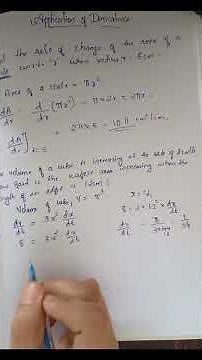 Application of Derivatives
the rate of change of the area of a
w.r.t. 'r' when radius r = 5cm
Area of a circle = πr²
dA/dr = d/dr (πr²) = π × 2r = 2πr
dA/dr]r=5 = 2π×5 = 10π cm²/cm
volume of a cube is increasing at the rate of 8cm³/s
How fast is the surface area increasing when the
length of an edge is 12cm?
Volume of cube, V = x³
dv/dt = 3x² dx/dt
8 = 3x² dx/dt
x = 12
8 = 3×12² × dx/dt
dx/dt =